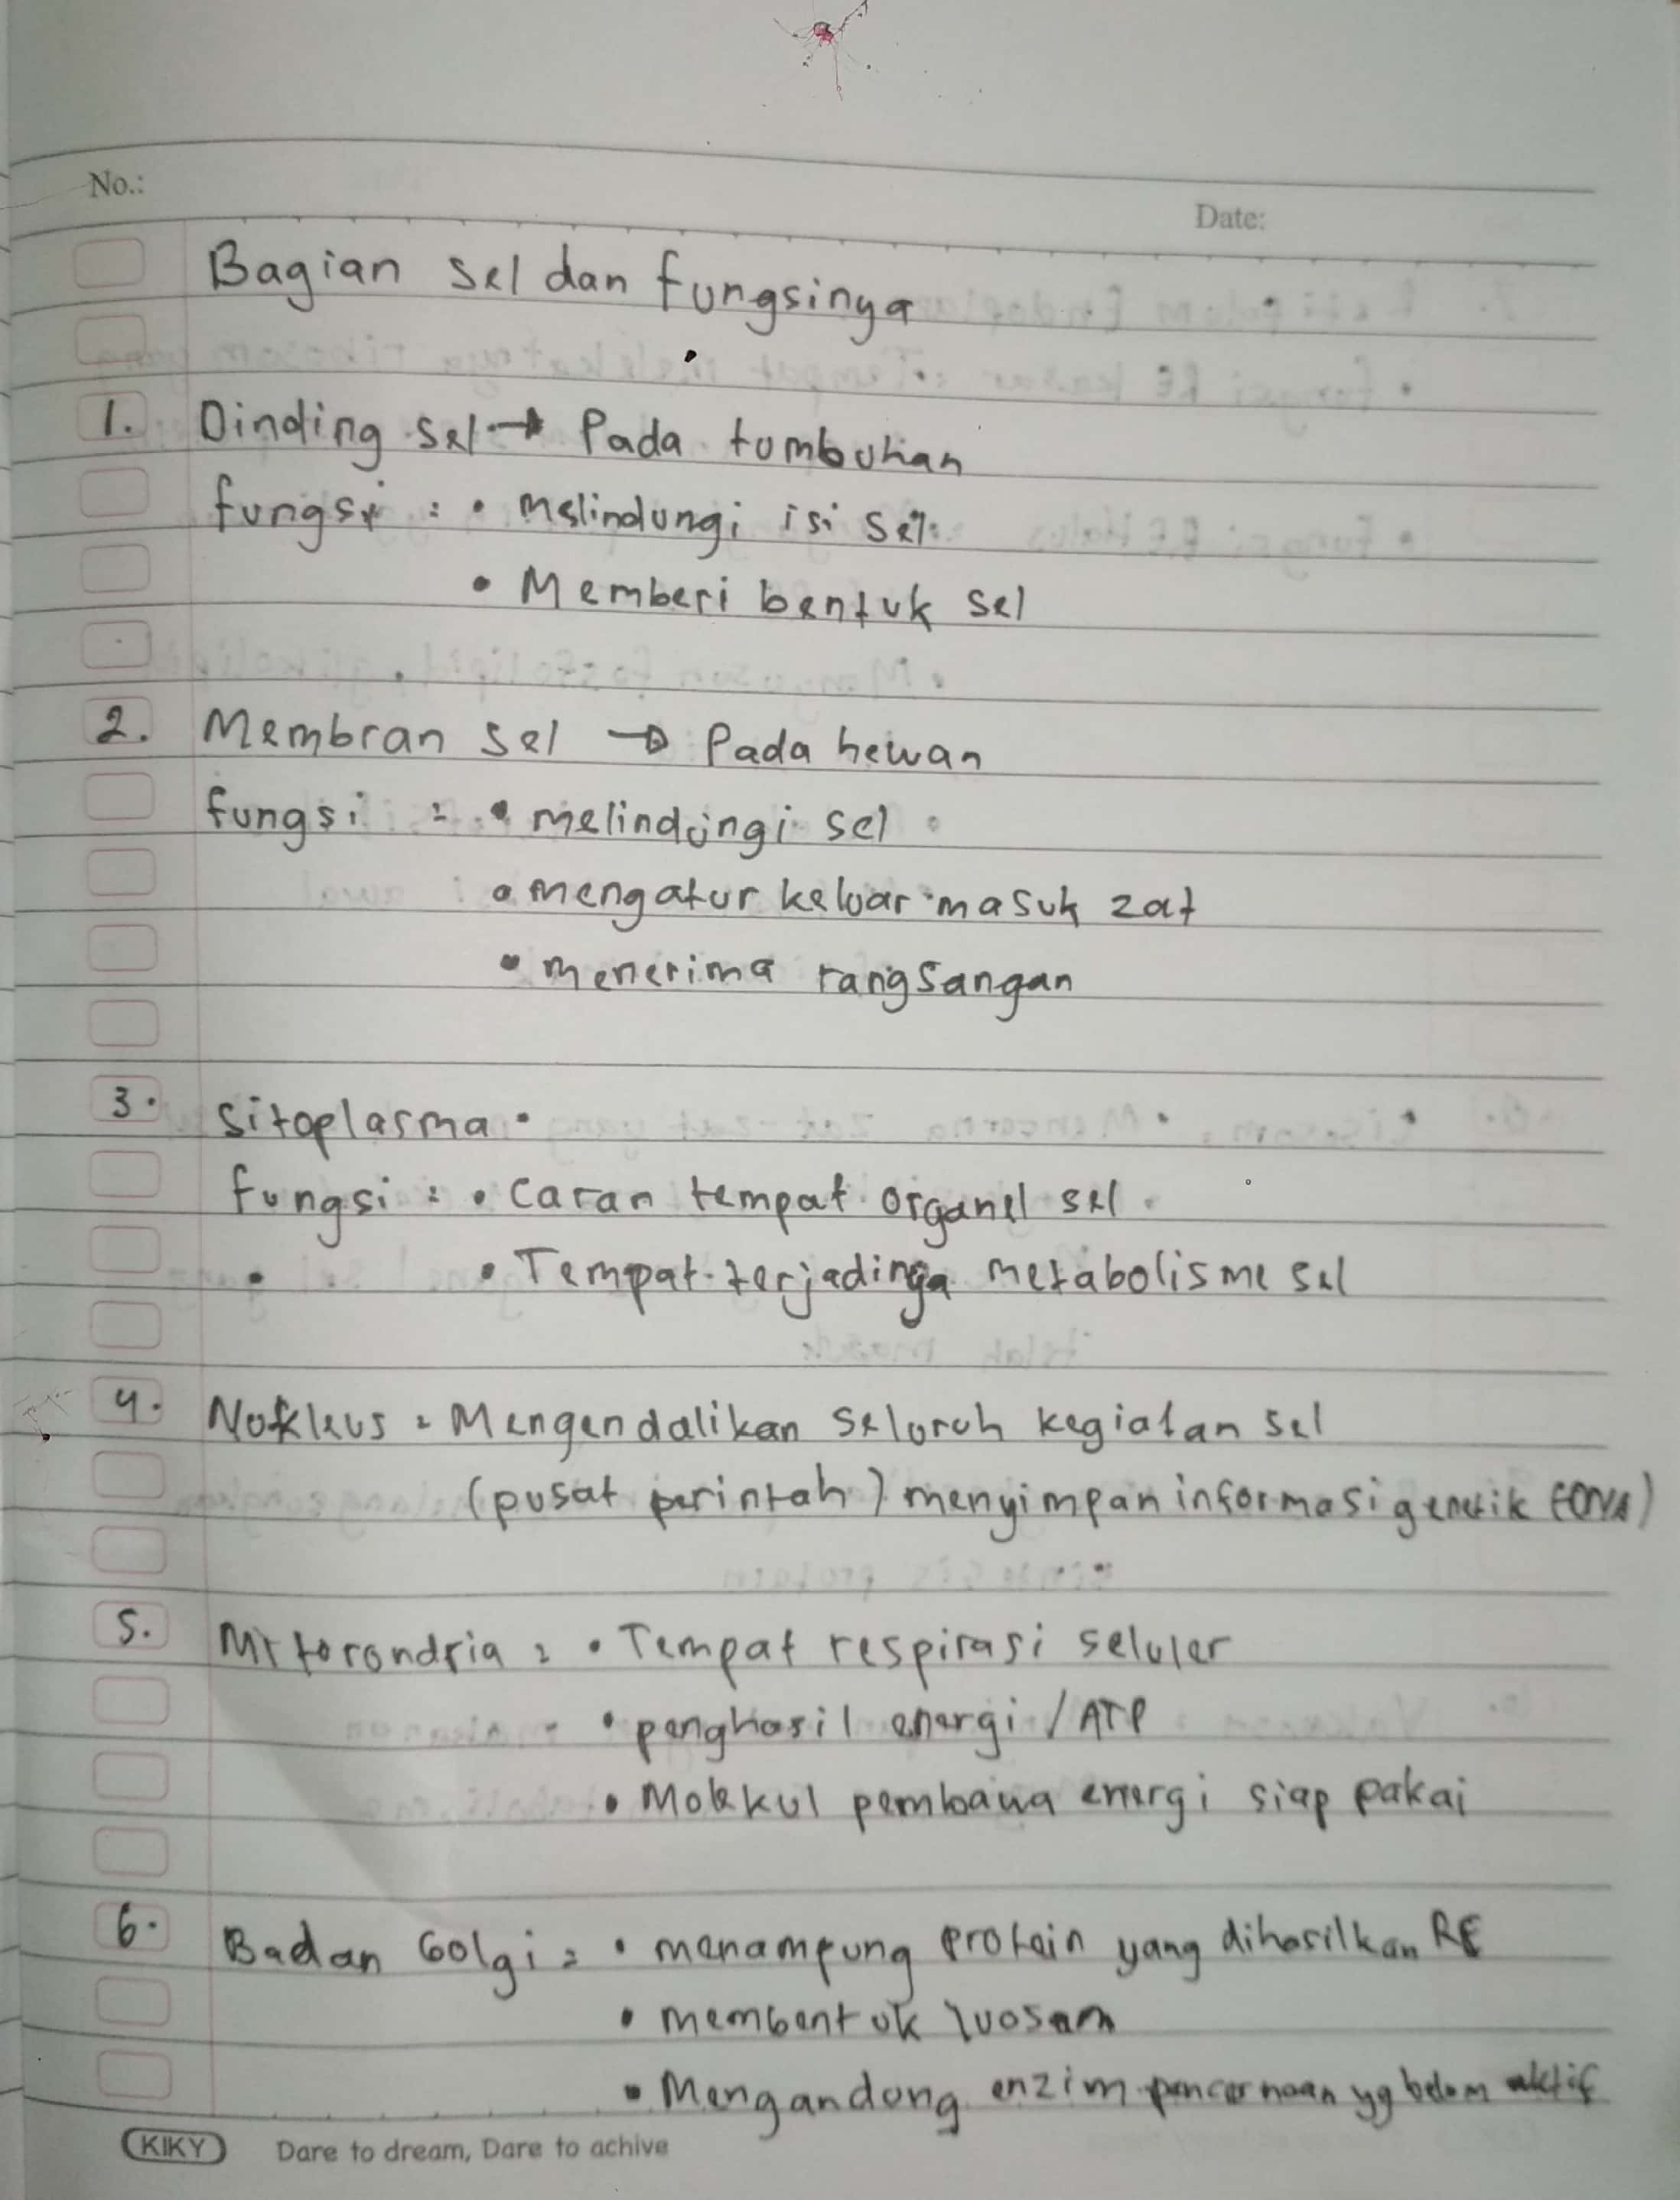 No.:
Date:
Bagian sel dan fungsinya
1. Dinding sel → Pada tumbuhan
fungsi : • Melindungi isi sel
• Memberi bentuk sel
2. Membran sel → Pada hewan
fungsi : • melindungi sel
• mengatur keluar masuk zat
• menerima rangsangan
3. Sitoplasma
fungsi : • Caran tempat organel sel
• Tempat terjadinya metabolisme sel
4. Nukleus : Mengendalikan seluruh kegiatan sel
(pusat perintah) menyimpan informasi genetik (DNA)
5. Mitorondria : • Tempat respirasi seluler
• penghasil energi / ATP
• Molekul pembawa energi siap pakai
6. Badan Golgi : • menampung protein yang dihasilkan RE
• membentuk
• Mengandung enzim pencernaan yg belum aktif
KIKY Dare to dream, Dare to achive